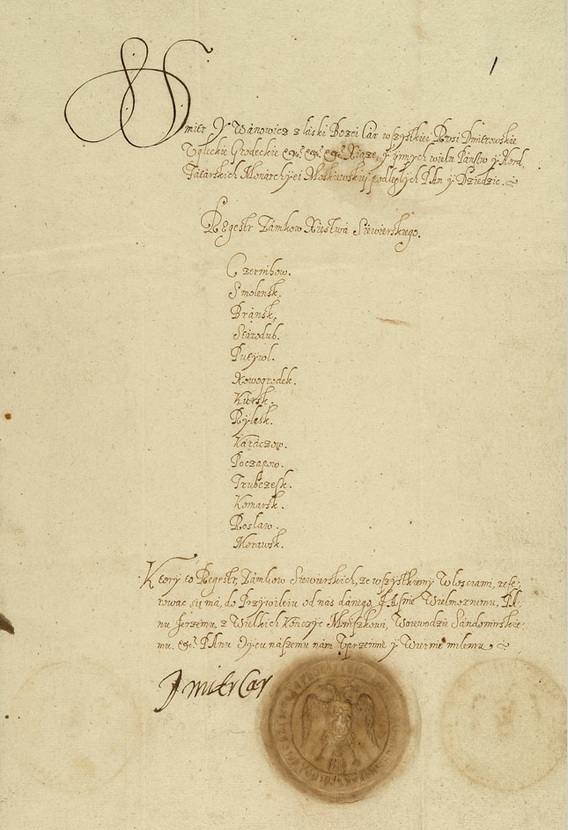 Dmitr Ywanowicz z łaski Bozei Car wszystkiei Rusi Dmitrowskie
Uglickie Grodeckie etc. etc. etc. Xiąze, y ynnych wielu Państw y Hord
Tatarskich Monarchyei Moskiewskiej podległych Pan y Dziedzic.
Regestr Zamkow Xiestwa Siewierskiego.
Czernihow.
Smolensk.
Bransk.
Starodub.
Putywl.
Nowogrodek.
Kursk.
Rylesk.
Karaczow.
Poczapow.
Trubczesk.
Komarsk.
Roslaw.
Morawsk.
Ktory to Regestr, Zamkow Siewierskich, ze wszystkiemi Włosciami, refe-
rowac się ma, do Przywileiu od nas danego, Jasnie Wielmoznemu, Pa-
nu Jerzemu, z Wielkich Konczyc Mniszkowi, Woiewodzie Sandomirskie-
mu, etc. Panu Oycu naszemu nam Uprzeimie y Wiernie miłemu
Dmitr Car